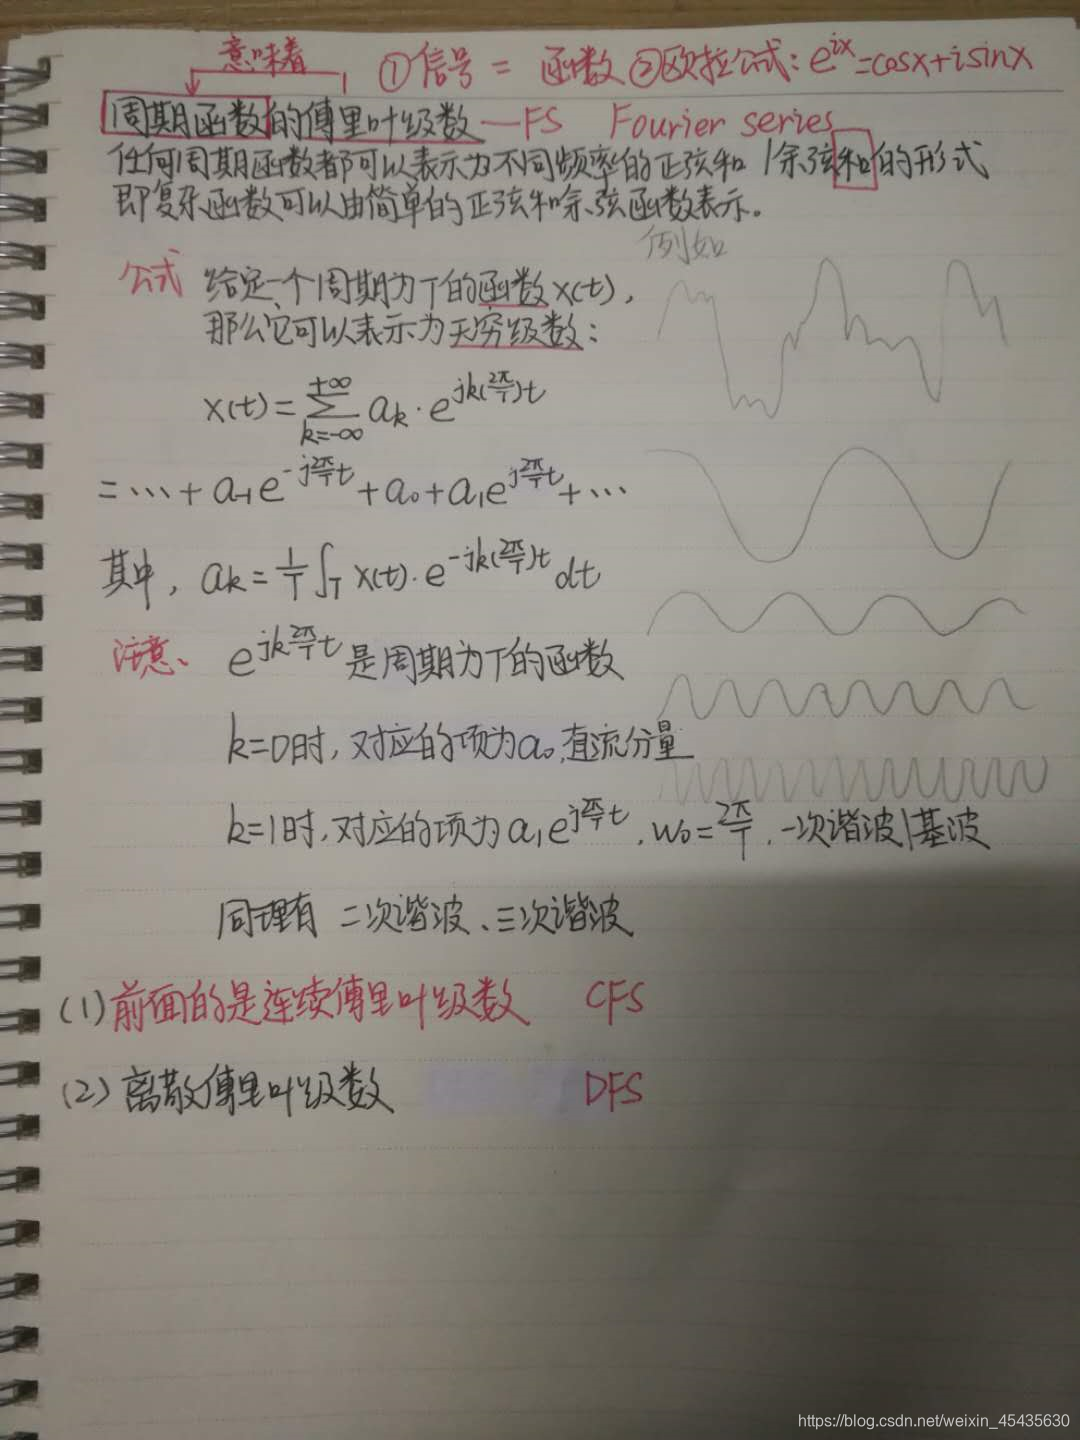 意味着 ①信号 = 函数 ②欧拉公式: e^{ix}=cosx+isinx
周期函数的傅里叶级数 — FS Fourier series
任何周期函数都可以表示为不同频率的正弦和/余弦和的形式
即复杂函数可以由简单的正弦和余弦函数表示。
例如
公式 给定一个周期为T的函数x(t),
那么它可以表示为无穷级数:
x(t)=∑_{k=-∞}^{+∞} a_k·e^{jk(2π/T)t}
=…+a_{-1}e^{-j2π/T t}+a_0+a_1e^{j2π/T t}+…
其中, a_k=1/T ∫_T x(t)·e^{-jk(2π/T)t}dt
注意、 e^{jk2π/T t}是周期为T的函数
k=0时,对应的项为a_0,直流分量
k=1时,对应的项为a_1e^{j2π/T t}, w_0=2π/T, 一次谐波/基波
同理有 二次谐波、三次谐波
(1)前面的是连续傅里叶级数 CFS
(2)离散傅里叶级数 DFS
https://blog.csdn.net/weixin_45435630